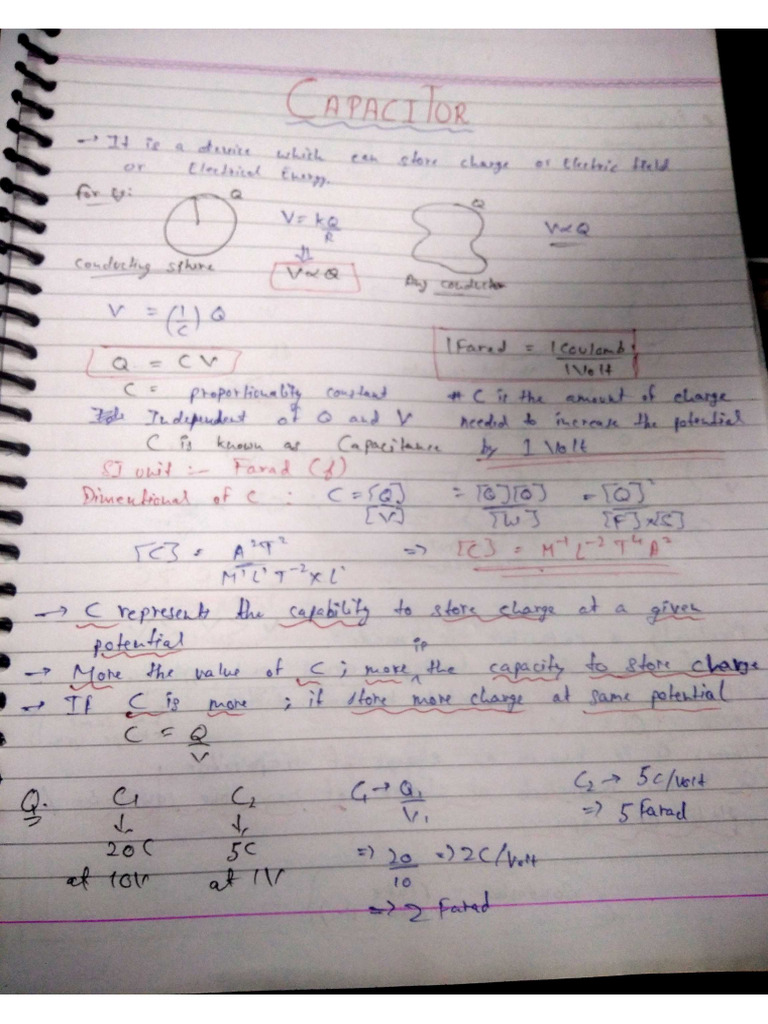 CAPACITOR
→ It is a device which can store charge or Electric field
or Electrical Energy.
For Eg:
Q
V = kQ/R
⇓
V ∝ Q
Conducting sphere
Q
V ∝ Q
Any conductor
V = (1/C) Q
Q = CV
1 Farad = 1 Coulomb / 1 Volt
C = proportionality constant
Independent of Q and V
C is known as Capacitance
# C is the amount of charge
needed to increase the potential
by 1 Volt
SI unit :- Farad (f)
Dimentional of C : C = [Q]/[V] = [Q][Q]/[W] = [Q]²/[F]×[S]
[C] = A²T² / M¹L¹T⁻²×L¹ => [C] = M⁻¹L⁻²T⁴A²
→ C represents the capability to store charge at a given
potential
→ More the value of C ; more is the capacity to store charge
→ If C is more ; it store more charge at same potential
C = Q/V
Q. C1 C2
↓ ↓
20C 5C
at 10V at 1V
C1 → Q1/V1
=> 20/10 => 2C/Volt
=> 2 Farad
C2 → 5C/Volt
=> 5 Farad